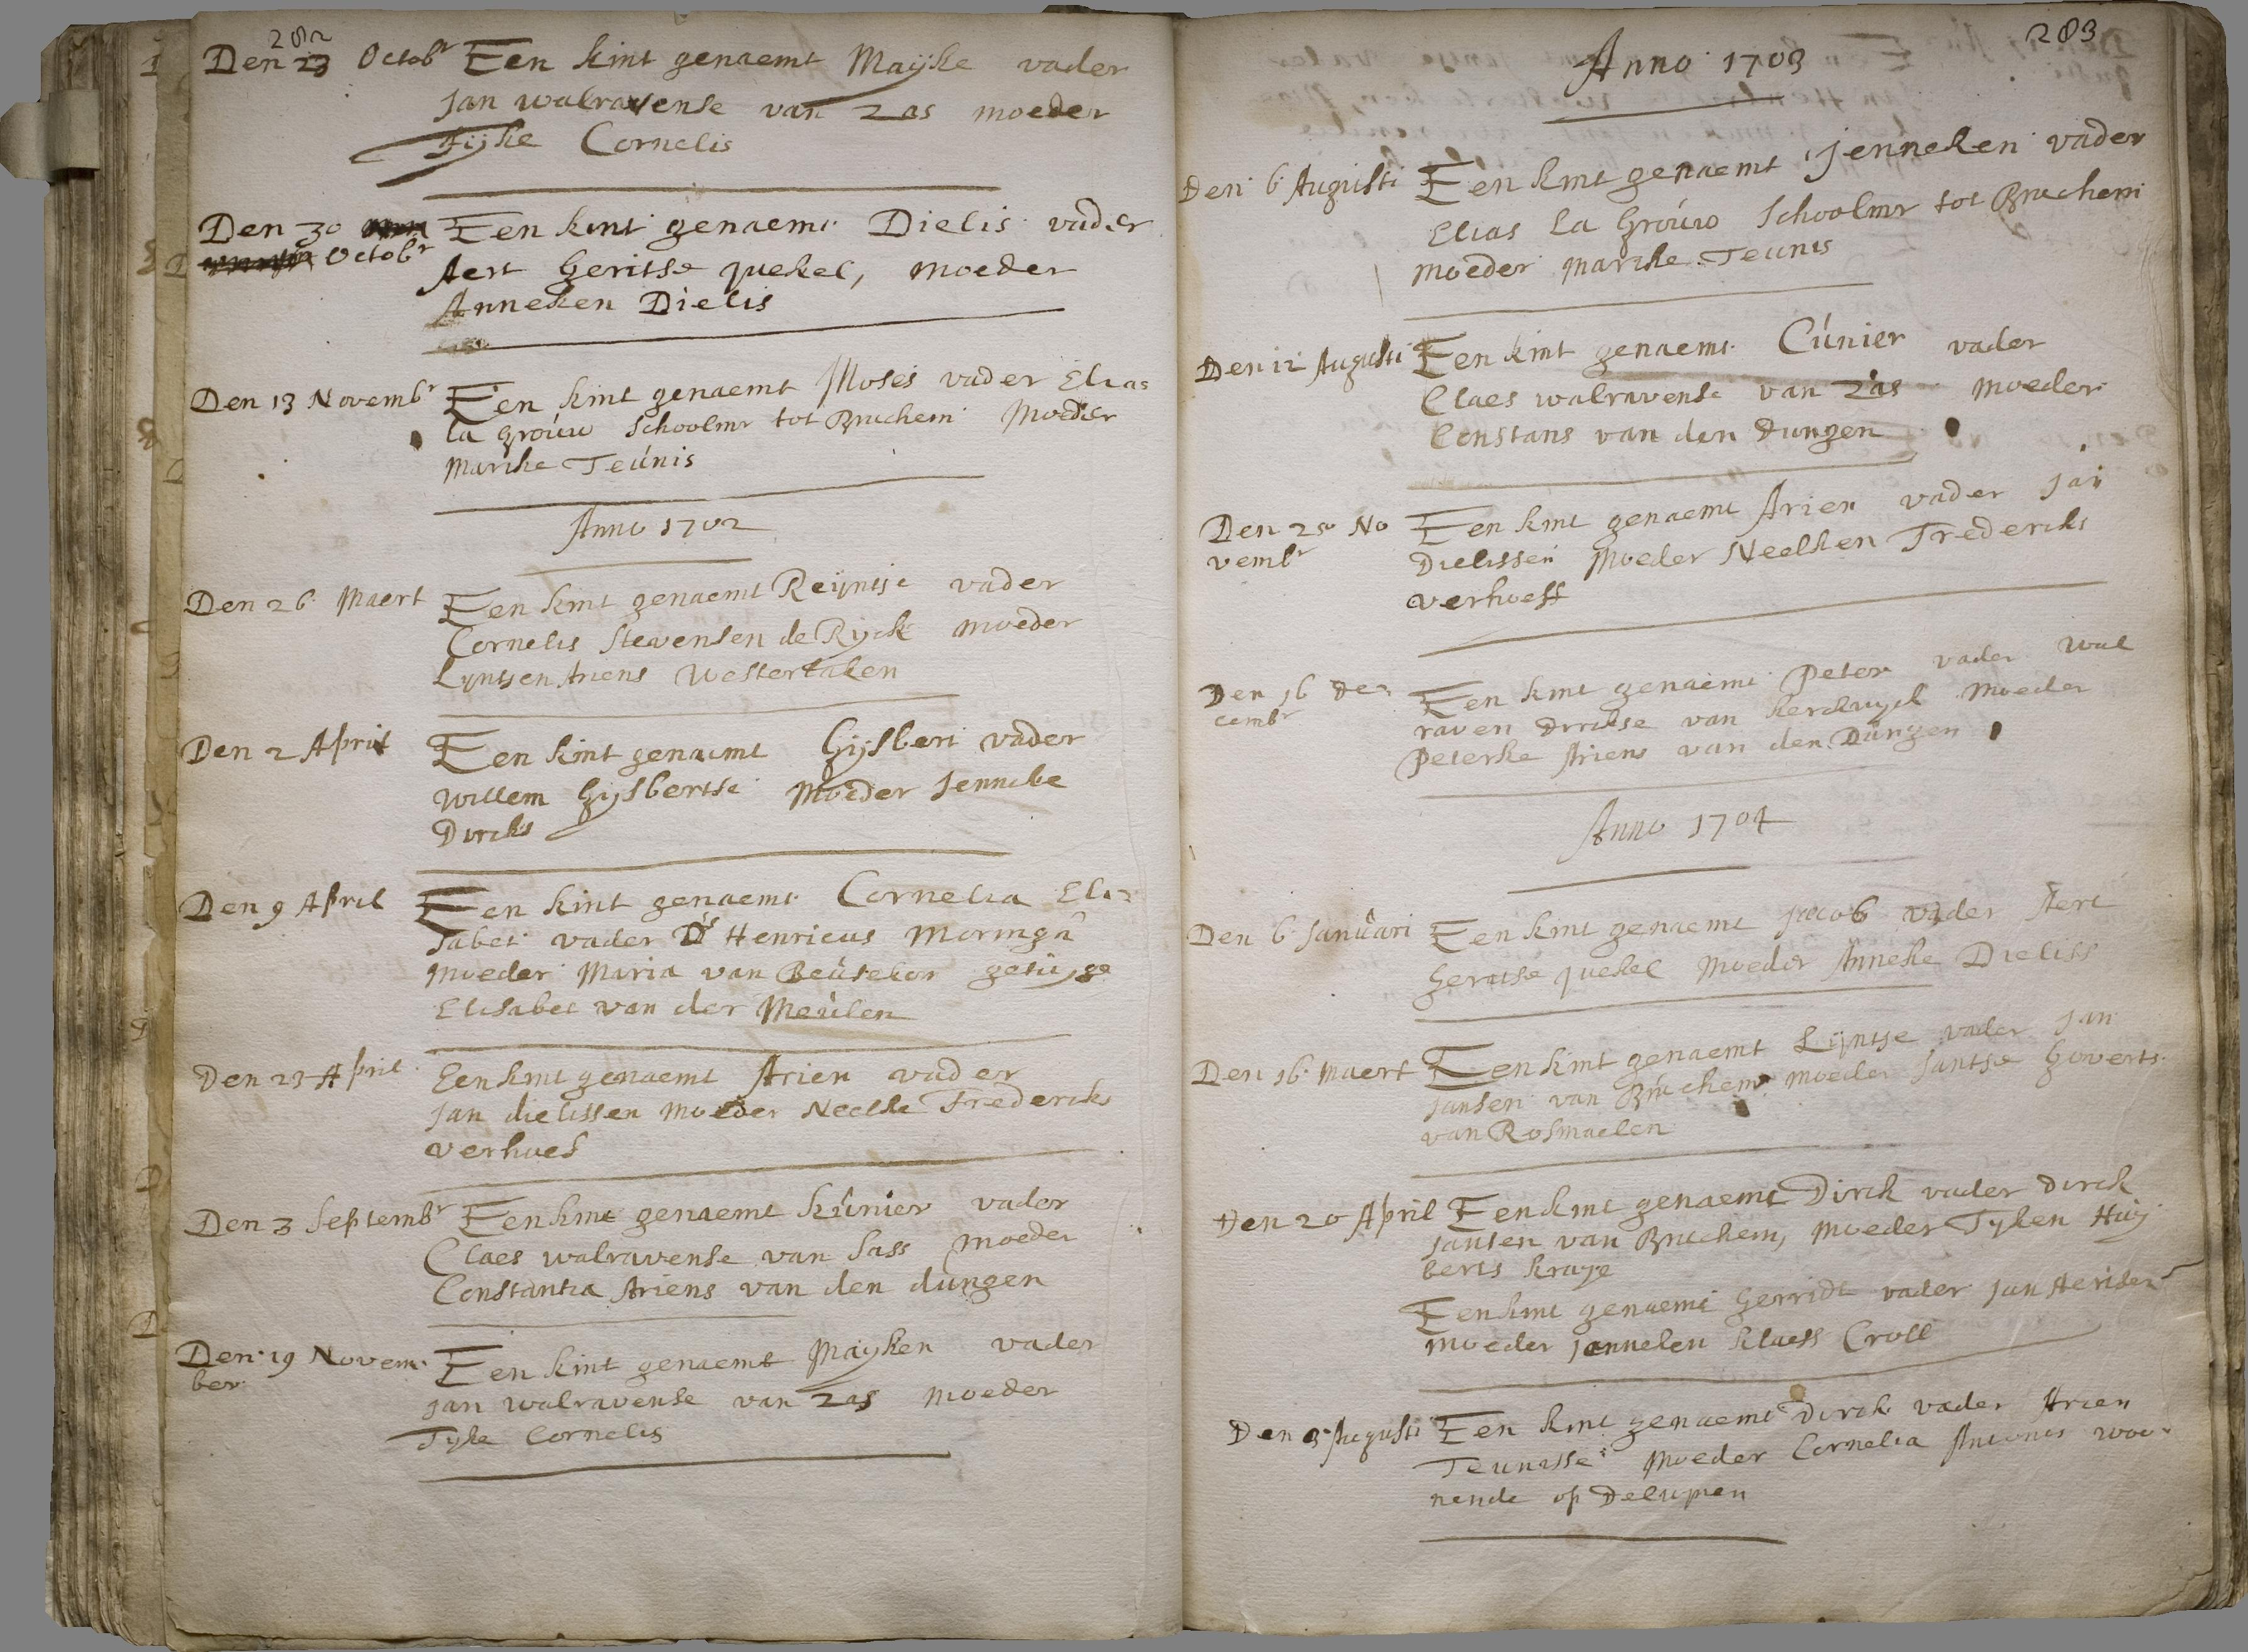 282
Den 23 Octobr Een kint genaemt Maijke vader
Jan walravense van Zas moeder
Tijke Cornelis
Den 30 Een kint genaemt Dielis vader
Octobr Aert Geritse quekel, moeder
Anneken Dielis
Den 13 Novembr Een kint genaemt Moses vader Elias
la grouw Schoolmr tot Bruchem Moeder
Marike Teunis
Anno 1702
Den 26 Maert Een kint genaemt Reijntje vader
Cornelis Stevensen de Ryck moeder
Lyntjen Ariens Westerlaken
Den 2 April Een kint genaemt Gijsbert vader
Willem Gijsbertse Moeder Jenneke
Dircks
Den 9 April Een kint genaemt Cornelia Eli-
sabet vader Ds Henricus Moringh
moeder Maria van Beusekor getuyge
Elisabet van der Meulen
Den 23 April Een kint genaemt Arien vader
Jan dielissen Moeder Neelke Fredericks
verhoef
Den 3 Septembr Een kint genaemt Kunier vader
Claes walravense van Sass moeder
Constantia Ariens van den dungen
Den 19 Novem- Een kint genaemt Mayken vader
ber Jan walravense van Zas moeder
Tyke Cornelis
283
Anno 1703
Den 6 Augusti Een kint genaemt Jenneken vader
Elias la Grouw Schoolmr tot Bruchem
moeder Marike Teunis
Den 12 Augusti Een kint genaemt Cunier vader
Claes walravense van Zas moeder
Constans van den Dungen
Den 25 No Een kint genaemt Arien vader Jan
vembr Dielissen Moeder Neelken Fredericks
verhoeff
Den 16 De- Een kint genaemt Peter vader Wal
cembr raven Dirckse van kerckwyck Moeder
Peterke Ariens van den Dungen
Anno 1704
Den 6 Januari Een kint genaemt Jacob vader Aert
Geritse quekel Moeder Anneke Dieliss
Den 16 Maert Een kint genaemt Lijntje vader Jan
Jansen van Bruchem moeder Jantse Goverts
van Rosmaelen
Den 20 April Een kint genaemt Dirck vader dirck
Jansen van Bruchem, Moeder Tyken Huij
berts kraye
Een kint genaemt Gerridt vader Jan Aertsen
moeder Janneken Klaess Croll
Den 3 Augusti Een kint genaemt Dirck vader Arien
Teunisse Moeder Cornelia Antonis woo-
nende op Delwynen